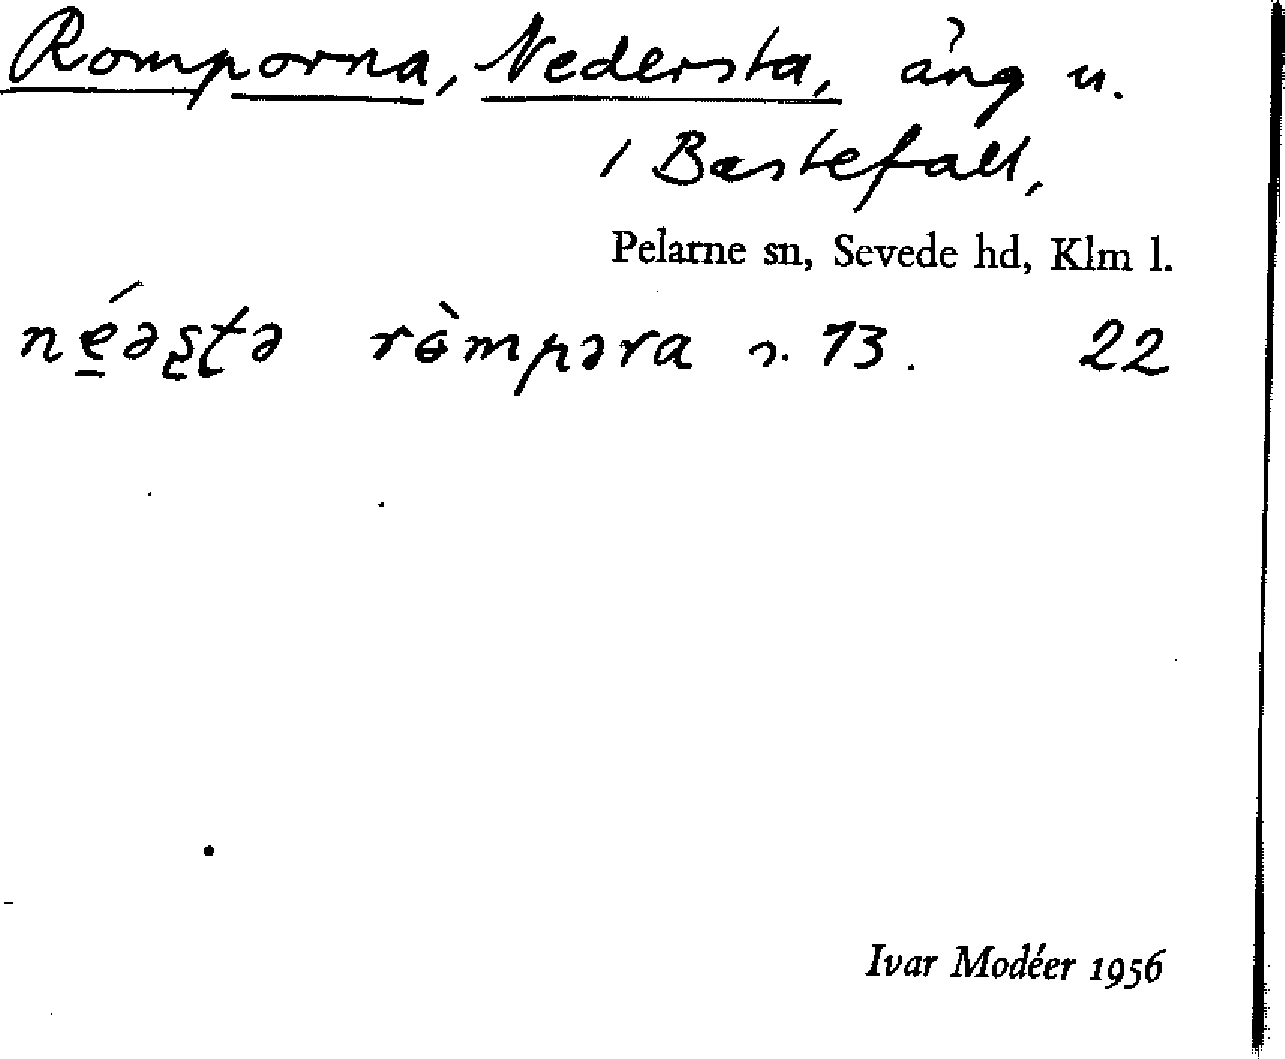 Romporna, Nedersta, äng u.
/ Bastefall,
Pelarne sn, Sevede hd, Klm l.
s. 73. 22
Ivar Modéer 1956